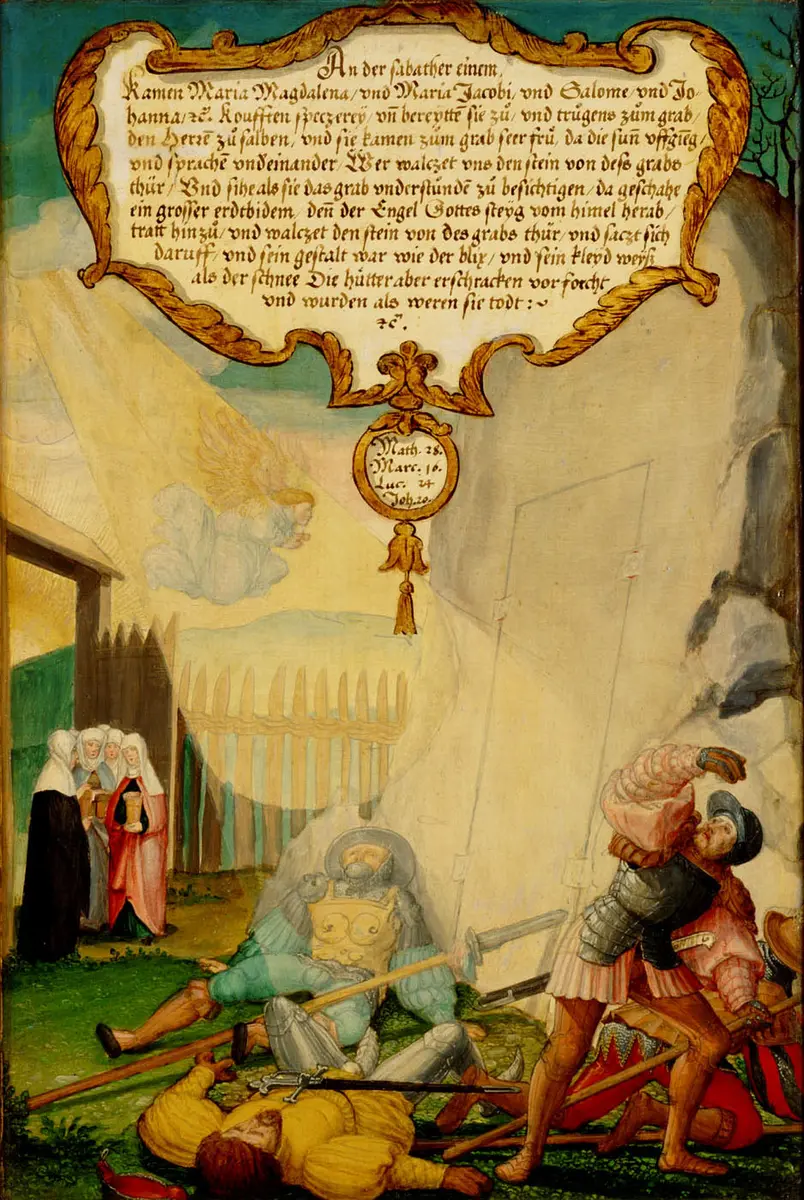 An der sabather einem,
Kamen Maria Magdalena / vnd Maria Jacobi / vnd Salome / vnd Jo-
hanna / ꝛc̃. Koufften speczerey / vñ bereytte sie zů / vnd trůgens zům grab /
den Herrẽ zů salben / vnd sie kamen zům grab seer frů, da die suñ vffgieng /
vnd sprachẽ vndeinander / Wer walczet vns den stein von dess grabs
thür / Vnd sihe als sie das grab vnderstůndẽ zů besichtigen / da geschahe
ein grosser erdtbidem / deñ der Engel Gottes steyg vom himel herab /
tratt hinzů / vnd walczet den stein von des grabs thür / vnd saczt sich
daruff / vnd sein gestalt war wie der blix / vnd sein kleyd weyß
als der schnee Die hütter aber erschracken vor forcht
vnd wurden als weren sie todt : ~
ꝛc̃.
Math. 28.
Marc. 16.
Luc. 24
Joh. 20.